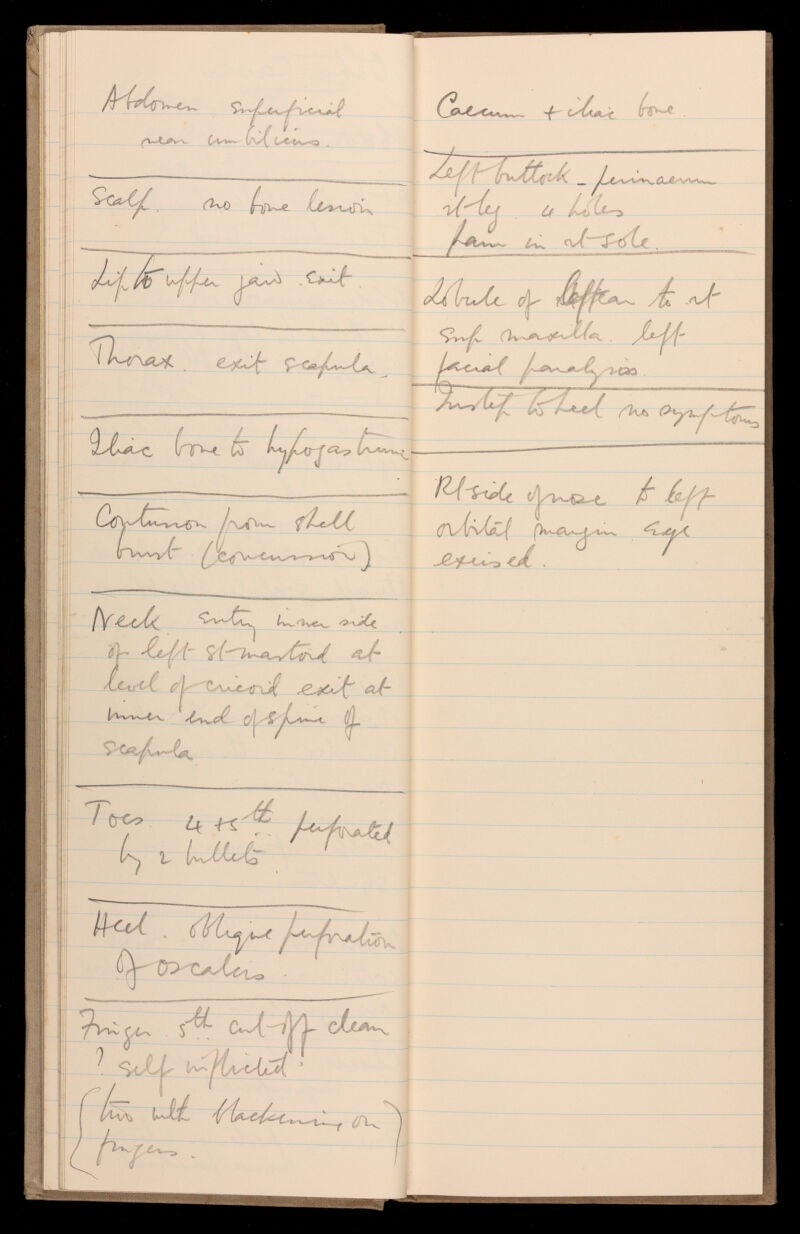 Abdomen superficial
near umbilicus.
Scalp. no bone lesion
Lip to upper jaw. Exit.
Thorax. exit scapula.
Iliac bone to hypogastrium
Contusion from shell
burst (concussion)
Neck entry inner side
of left st mastoid at
level of cricoid exit at
inner end of spine of
scapula
Toes 4 + 5th perforated
by 2 bullets.
Heel. oblique perforation
of os calcis.
Finger 5th cut off clean
? self inflicted.
(two with blackening on
fingers.)
Caecum + iliac bone.
Left buttock - perinaeum
rt leg 4 holes
pain in rt sole.
Lobule of left ear to rt
sup maxilla. left
facial paralysis.
Instep to heel no symptoms
Rt side of nose to left
orbital margin eye
excised.